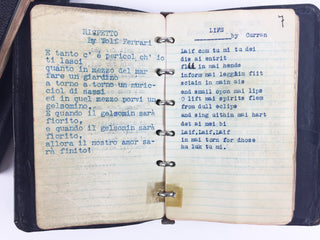 RISPETTO
By Wolf Ferrari
E tanto c' è pericol ch' io
ti lasci
quanto in mezzo del mar
fare un giardino
a torno a torno un muric-
ciol di sassi
ed in quel mezzo porvi un
gelsomino,
E quando il gelsomin sarà
fiorito,
e quando il gelsomin sarà
fiorito,
allora il nostro amor sa-
rà finito!
7
LIFE
by Curran
Laif com tu mi tu dei
dis ai entrit
in mai hands
inform mai legghin fiit
sclain in main ais
and smail opon mai lips
O lift mai spirits flem
from dull eclips
and sing uithin mai hart
det ai mei bi
Laif,Laif,Laif
in mai torn for dhose
hu luk tu mi.